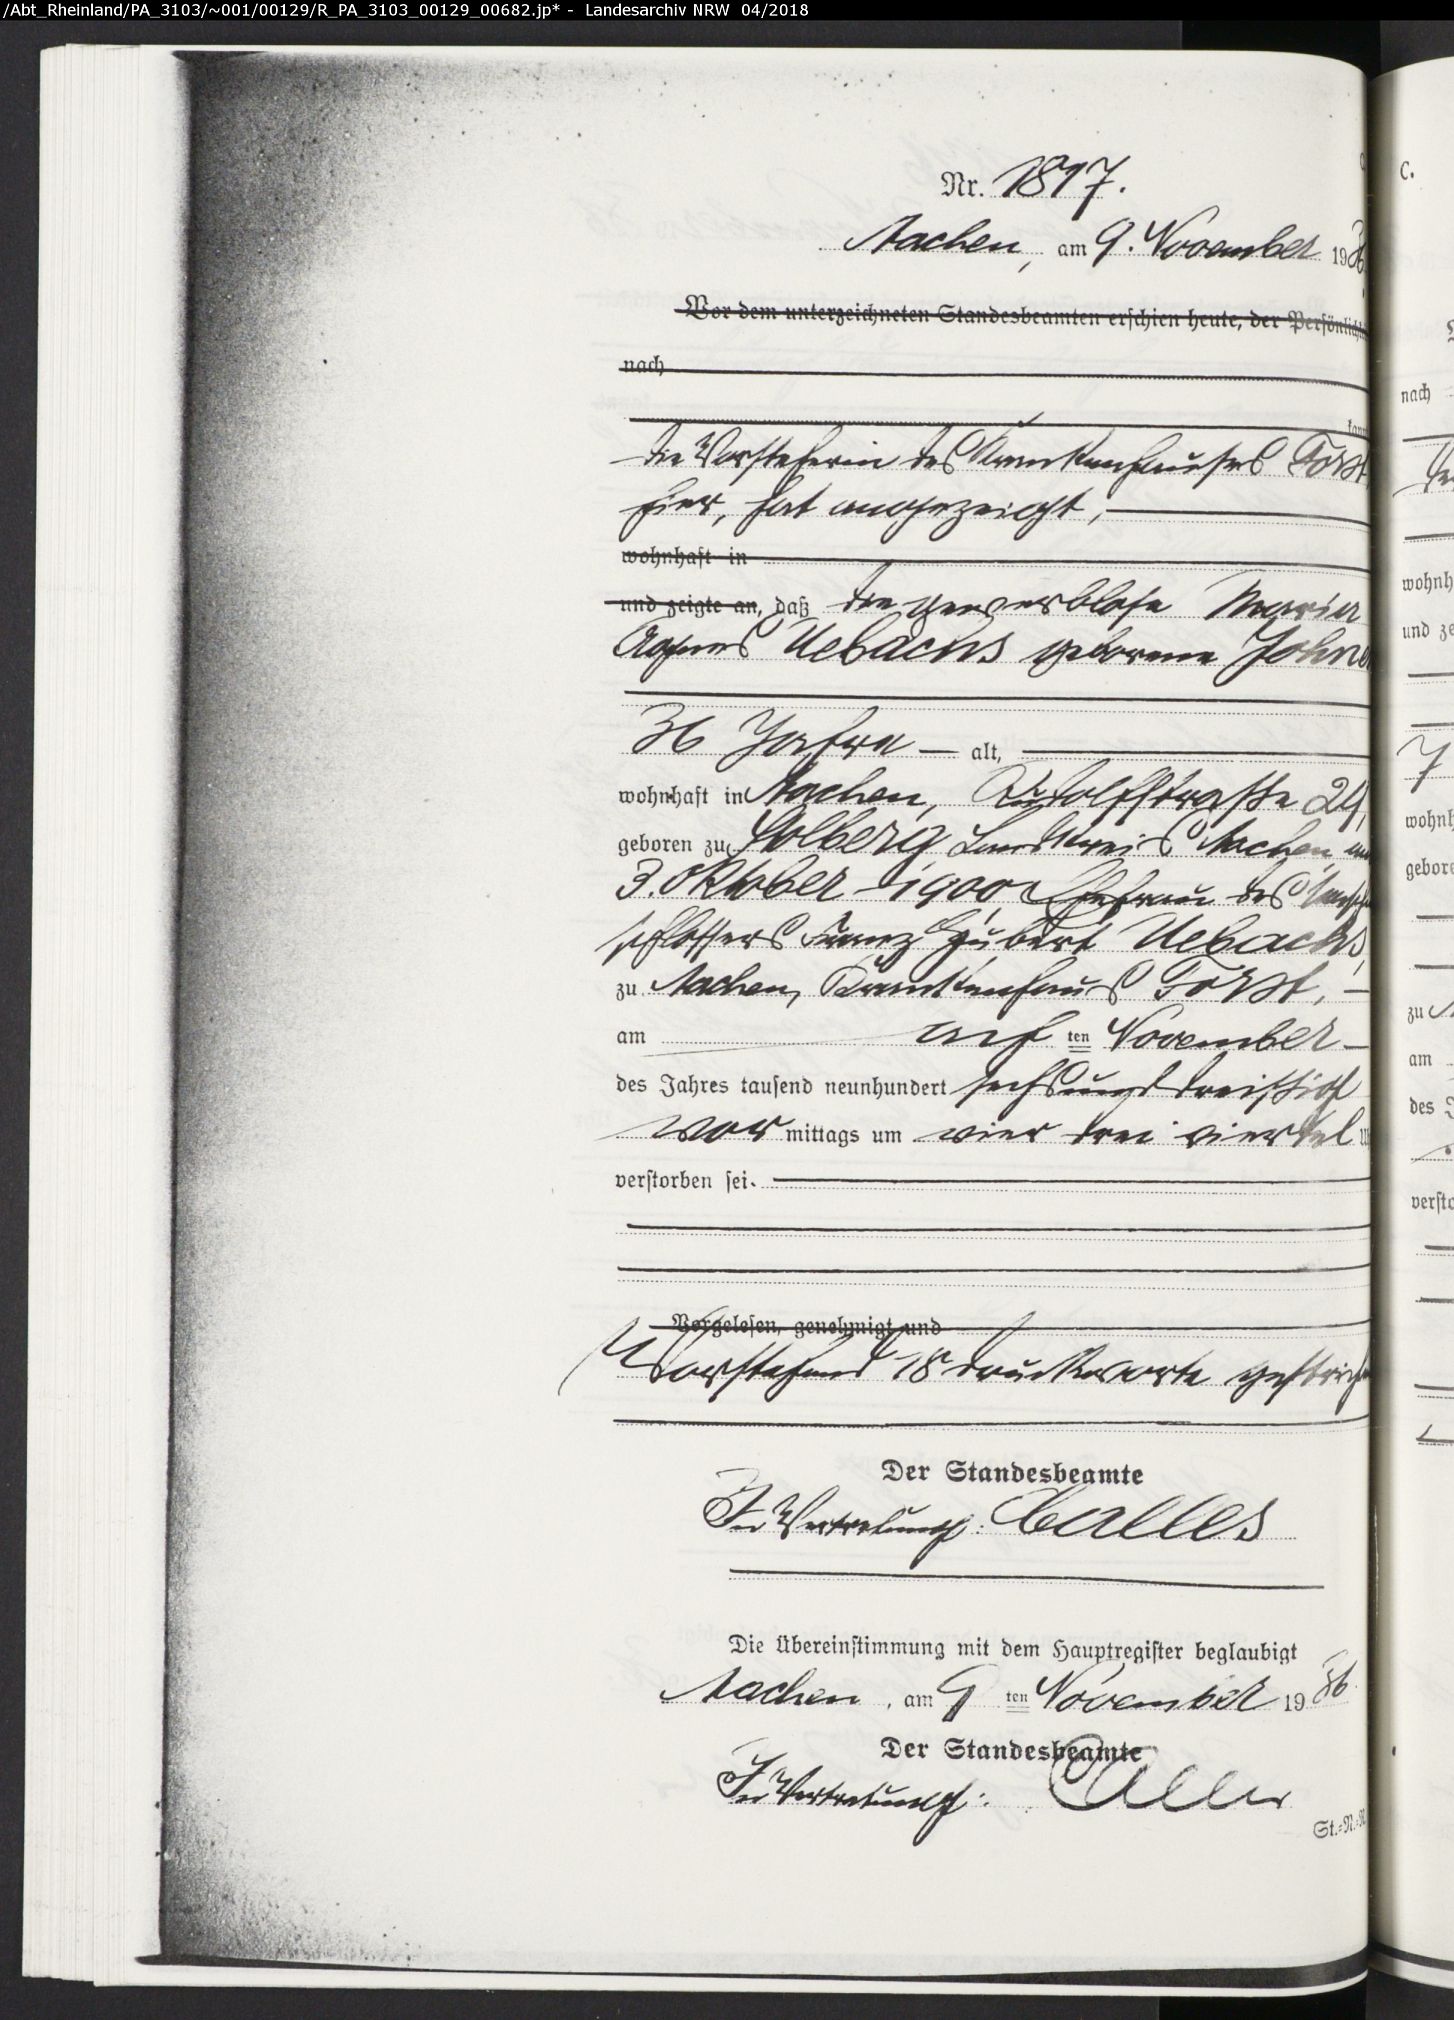 /Abt_Rheinland/PA_3103/~001/00129/R_PA_3103_00129_00682.jp* - Landesarchiv NRW 04/2018
Nr. 1817.
Aachen, am 9. November 1936
Vor dem unterzeichneten Standesbeamten erschien heute, der Persönlich
nach
kann
die Vorsteherin des Krankenhauses Forst
hier, hat angezeigt,
wohnhaft in
und zeigte an, daß die gewerblose Maria
Agnes Uebachs geborene Johne
36 Jahre alt,
wohnhaft in Aachen, Rudolfstraße 24,
geboren zu Stolberg, Landkreis Aachen am
3. Oktober 1900, Ehefrau des
schlossers Franz Hubert Uebachs,
zu Aachen, Krankenhaus Forst,
am ten November
des Jahres tausend neunhundert sechsunddreißig
vor mittags um vier drei viertel
verstorben sei.
Vorgelesen, genehmigt und
Vorstehend 18 Druckworte gestrichen
Der Standesbeamte
In Vertretung: Calles
Die Übereinstimmung mit dem Hauptregister beglaubigt
Aachen, am 9 ten November 1936.
Der Standesbeamte
In Vertretung: Calles
St.=N.=
C.
nach
wohnh
und ze
wohnh
gebore
zu
am
des J
versto